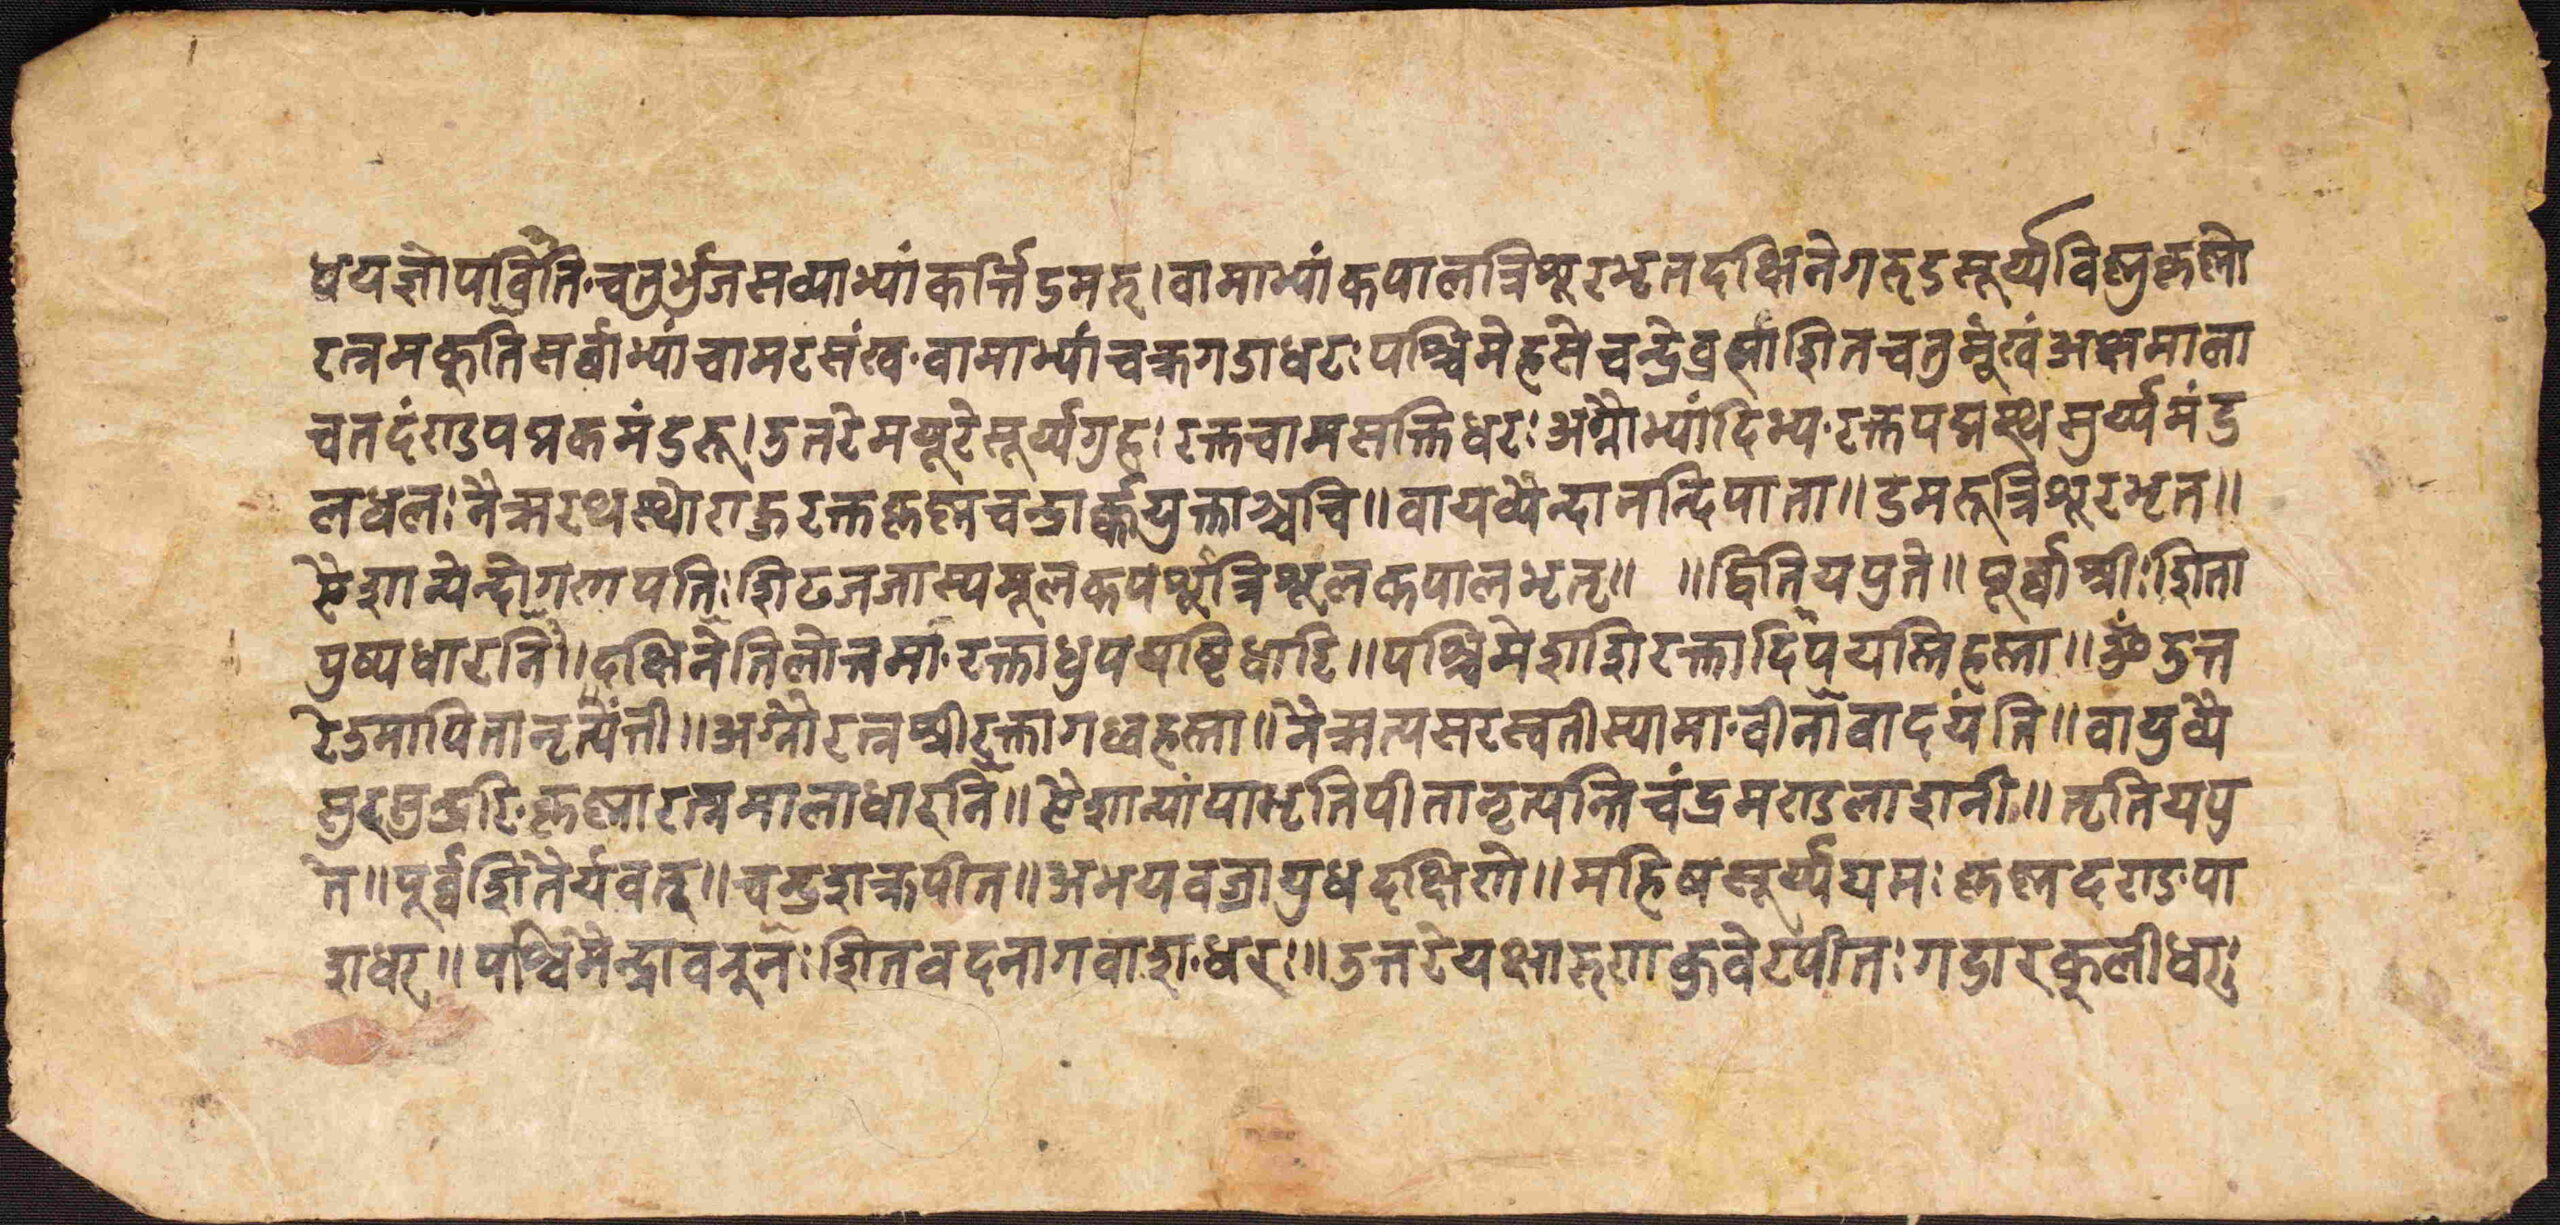 धयज्ञोपवितिचतुर्भुजसव्याभ्यां कर्त्तिडमरु।वामाभ्यांकपालत्रिशूरभृतदक्षिनेगरुडसूर्य्यविष्णुकृष्णो
रत्नमकुतिसर्व्वाभ्यांचामरसंख·वामाभ्यांचक्रगडाधरःपश्चिमेहंसेचन्द्रेब्रह्माशितचतुर्मुखंअक्षमाला
चतदंराडपद्मकमंडरू।उतरेमयूरेसूर्य्यगुहःरक्तवामसक्तिधरःअग्नौभ्यांदिभ्य·रक्तपद्मस्थसुर्य्यमंड
लधलःनैऋरथस्थोराहुरक्तकृष्णचन्द्रार्क्कयुक्ताश्चचि॥वायव्येन्दानन्दिपाता॥डमरूत्रिशूरभृत॥
ऐशान्येन्दोगणपतिःशितजजास्यमूलकपर्शुत्रिशूलकपालभृत्॥ ॥द्वितियपुते॥पूर्व्वाश्रीःशिता
पुष्पधारनि॥दक्षिनेतिलोत्तमा·रक्ताधुपयष्टिधारि॥पश्चिमेशशिरक्तादिपयस्तिहस्ता॥ॐउत्त
रेउमापितानृत्यंती॥अग्नौरत्नश्रीरक्तागध्वहस्ता॥नैऋत्यसरस्वतीस्यामा·वीनांवादयंति॥वायुव्यै
सुरसुन्द्ररि·कृष्णारत्नमालाधारनि॥ऐशान्यांपाभृतिपीतानृत्यन्तिचंद्रमण्डलाशनी॥तृतियपु
ते॥पूर्व्वशितेर्यवत्तु॥चन्द्रशक्रपीत॥अभयवज्रायुधदक्षिणे॥महिषसूर्य्ययमःकृष्णदण्डपा
शधर॥पश्चिमेन्द्रावनुनःशितवदनागवाश·धरः॥उत्तरेयक्षारुणाकुवेरपीतःगदारकुलीधरः